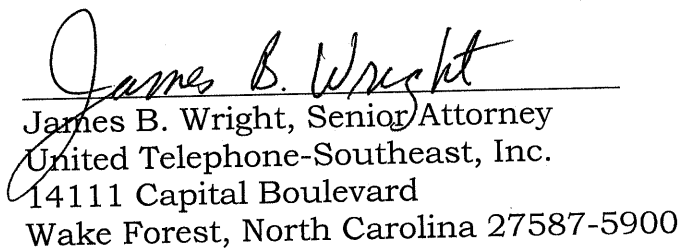 James B. Wright
James B. Wright, Senior Attorney
United Telephone-Southeast, Inc.
14111 Capital Boulevard
Wake Forest, North Carolina 27587-5900